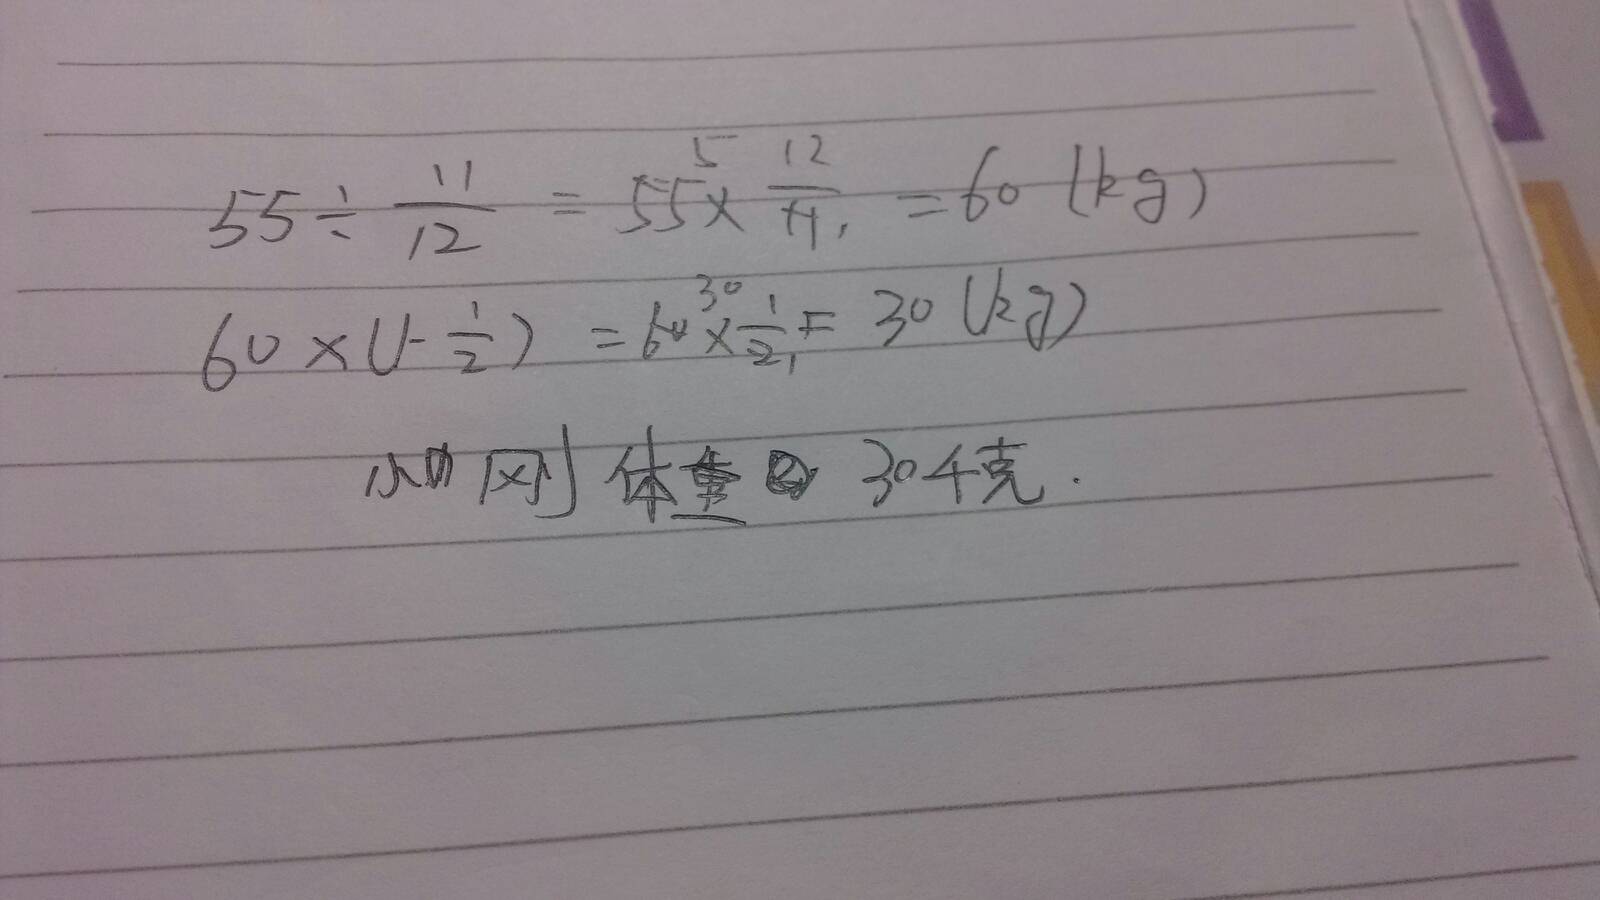 55÷11/12=55×12/11=60(kg)
60×(1-1/2)=60×1/2=30(kg)
小刚体重30千克.